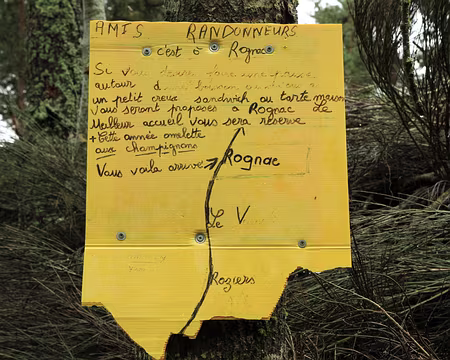 AMIS RANDONNEURS
c'est à Rognac
Si vous
autour d
un petit creux sandwich ou tarte maison
Vous seront proposés à Rognac Le
Meilleur accueil vous sera réservé
+ Cette année omelette
aux champignons
Vous voila arrivé → Rognac
Le V
Roziers